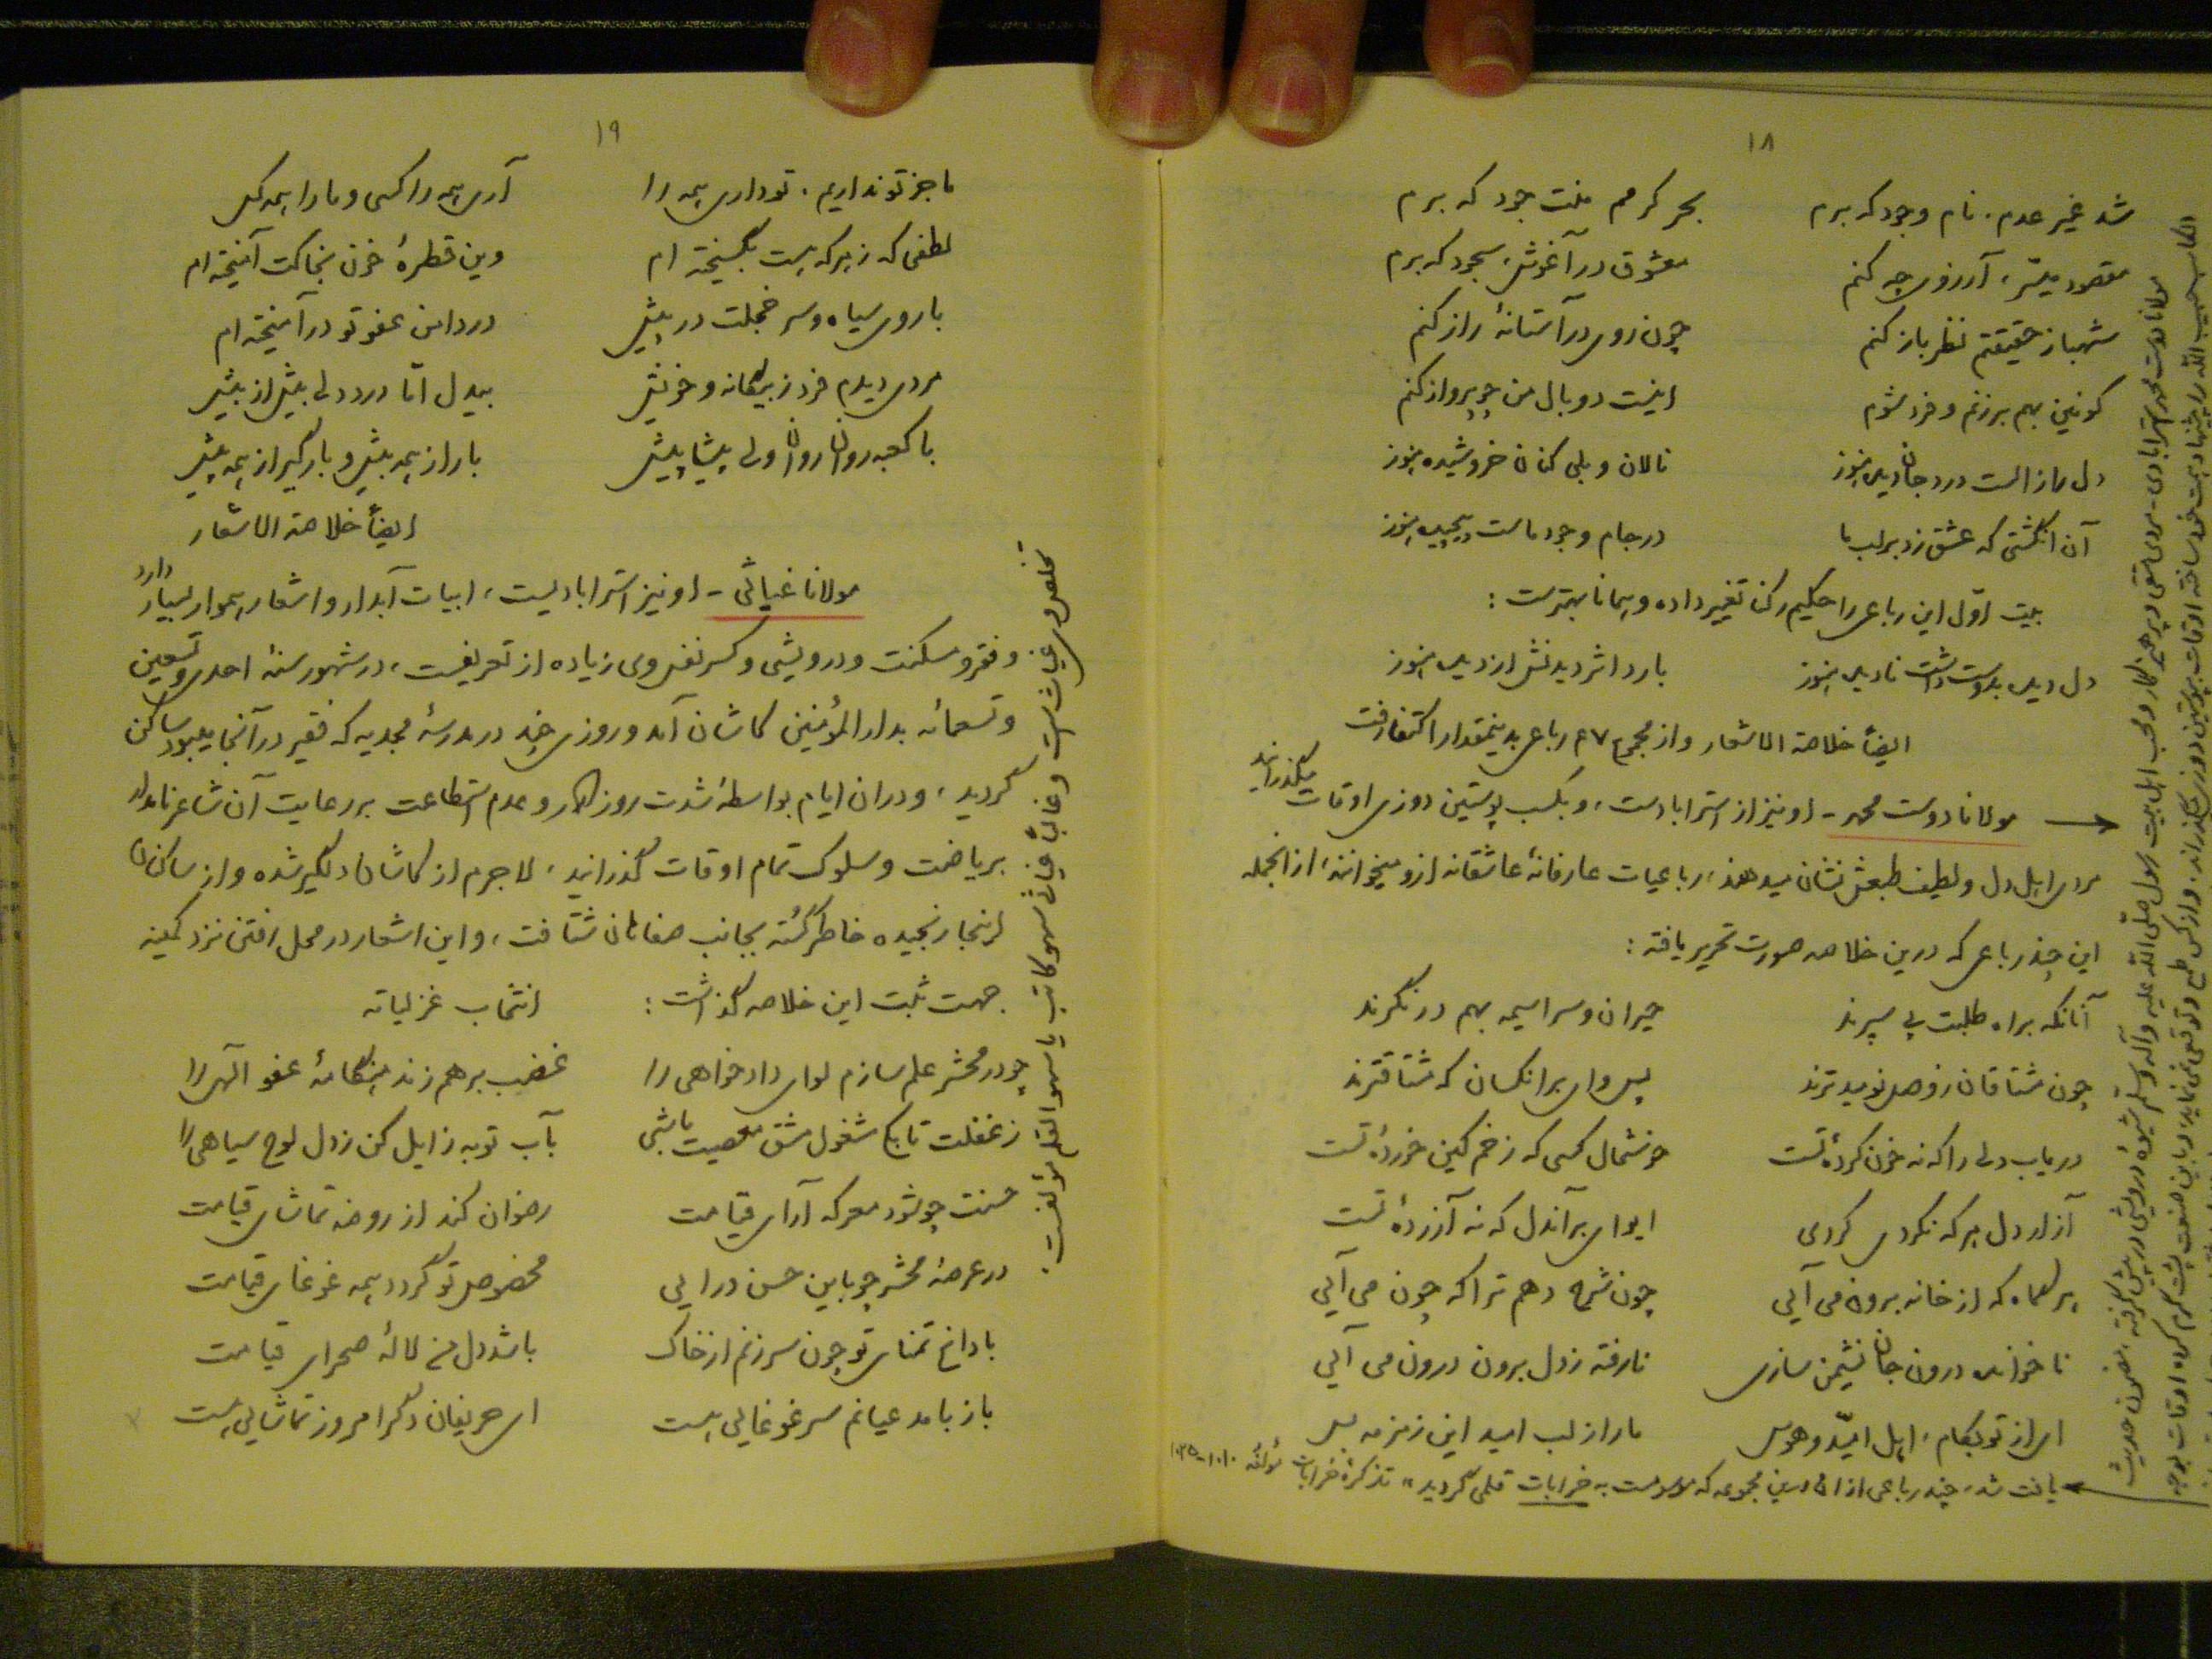 ۱۸
شد غیر عدم، نام وجود که برم    بحر کرمم منت جود که برم
مقصود میسر، آرزوی چه کنم    معشوق در آغوش، سجود که برم
شهباز حقیقتم نظر باز کنم    چون روی در آستانهٔ راز کنم
کونین بهم برزنم و فرد شوم    اینست دو بال من چو پرواز کنم
دل ماز الست درد جان دیده هنوز    نالان و بلی کنان خروشیده هنوز
آن انگشتی که عشق زد بر لب ما    در جام وجود ماست پیچیده هنوز
بیت اول این رباعی را حکیم رکنا تغییر داده و همانا بهترست:
دل دیده بدوست داشت نادیده هنوز    بارد اثر دیدنش از دیده هنوز
ایضاً خلاصة الاشعار و از مجموع ۴۷ رباعی بدینمقدار اکتفا رفت
مولانا دوست محمد - او نیز از استرابادست، و بکسب پوستین دوزی اوقات میگذراند
مردی اهل دل و لطیف طبعش نشان میدهند، رباعیات عارفانهٔ عاشقانه ازو میخوانند، از انجمله
این چند رباعی که درین خلاصه صورت تحریر یافته:
آنانکه براه طلبت پی سپرند    حیران و سراسیمه بهم در نگرند
چون مشتاقان ز وصل نومیدترند    پس وای بر انکسان که مشتاقترند
دریاب دلی را که نه خون کردهٔ تست    خوشحال کسی که زخم کین خوردهٔ تست
آزار دل هر که نکردی کردی    ایوای بر آندل که نه آزردهٔ تست
هر گاه که از خانه برون می آیی    چون شرح دهم ترا که چون می آیی
ناخوانده درون جان نشیمن سازی    نارفته ز دل برون درون می آیی
ای از تو بکام، اهل امید و هوس    ما را ز لب امید این زمزمه بس
یافت شد، چند رباعی از ان درین مجموعه که موسومست به خرابات قلمی گردید» تذکرهٔ خرابات مؤلفهٔ ۱۰۱۰-۱۰۲۵
مولانا دوست محمد استرابادی - مردی متقی و پرهیزگار و محب اهل بیت رسول صلی الله علیه وآله وسلم شیوهٔ درویشی در پیش گرفته بمضمون حدیث
الکاسب حبیب الله را پیشنهاد همت خود ساخته اوقات بپوستین دوزی میگذراند، و از کس طمع و توقعی نمی نماید،
۱۹
ما جز تو نداریم، تو داری همه را    آری همه را کسی و ما را همه کس
لطفی که ز هر که هست بگسیخته ام    وین قطرهٔ خون بخاکت آمیخته ام
با روی سیاه و سر خجلت در پیش    در دامن عفو تو در آمیخته ام
مردی دیدم فرد ز بیگانه و خویش    بیدل اما درد دلی بیش از بیش
با کعبه روان روان ولی پیشاپیش    بار از همه بیش و بارگیر از همه پیش
ایضاً خلاصة الاشعار
مولانا غیاثی - او نیز استرابادیست، ابیات آبدار و اشعار هموار بسیار دارد
و فقر و مسکنت و درویشی و کسر نفس وی زیاده از تعریفست، در شهور سنهٔ احدی و تسعین
و تسعمائه بدار المؤمنین کاشان آمد و روزی چند در مدرسهٔ مجدیه که فقیر در آنجا میبود ساکن
گردید، و در ان ایام بواسطهٔ شدت روزگار و عدم استطاعت بر رعایت آن شاعر نامدار
بریاضت و سلوک تمام اوقات گذرانید، لاجرم از کاشان دلگیر شده و از ساکنان
اینجا رنجیده خاطر گشته بجانب صفاهان شتافت، و این اشعار در محل رفتن نزد کمینه
جهت ثبت این خلاصه گذاشت:    انتخاب غزلیاته
چو در محشر علم سازم لوای دادخواهی را    غضب برهم زند هنگامهٔ عفو الهی را
ز غفلت تا بکی مشغول مشق معصیت باشی    بآب توبه زایل کن ز دل لوح سیاهی را
حسنت چو شود معرکه آرای قیامت    رضوان کند از روضه تماشای قیامت
در عرصهٔ محشر چو باین حسن درایی    مخصوص تو گردد همه غوغای قیامت
با داغ تمنای تو چون سر زنم از خاک    باشد دل من لالهٔ صحرای قیامت
باز بامد عیانم سر غوغایی هست    ای حریفان دگر امروز تماشایی هست
تخلص وی غیاث است و غالباً غیاثی سهو کاتب یا سهو القلم مؤلفست.